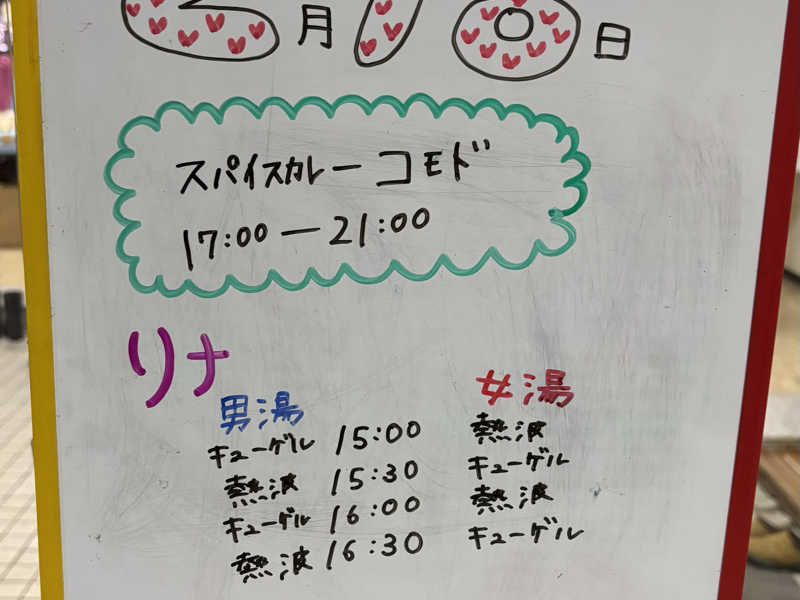 月 日
スパイスカレー コモド
17:00 ー 21:00
リナ
男湯 女湯
キューゲル 15:00 熱波
熱波 15:30 キューゲル
キューゲル 16:00 熱波
熱波 16:30 キューゲル